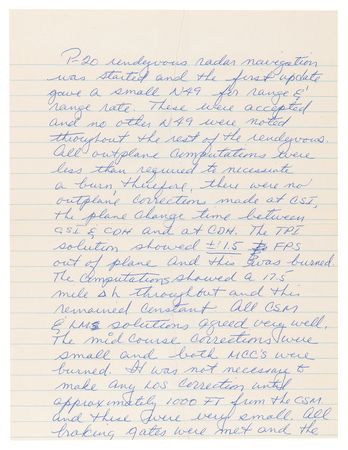 P-20 rendezvous radar navigation
was started and the first update
gave a small N49 for range &
range rate. These were accepted
and no other N49 were noted
throughout the rest of the rendezvous.
All outplane computations were
less than required to necessiate
a burn, therefore, there were no
outplane corrections made at CSI,
the plane change time between
CSI & CDH and at CDH. The TPI
solution showed ±1.5 FPS
out of plane and this was burned.
The computations showed a 17.5
mile Δh throughout and this
remained constant. All CSM
& LMs solutions agreed very well.
The mid course corrections were
small and both MCC's were
burned. It was not necessary to
make any LOS correction until
approximately 1000 FT from the CSM
and these were very small. All
braking gates were met and the